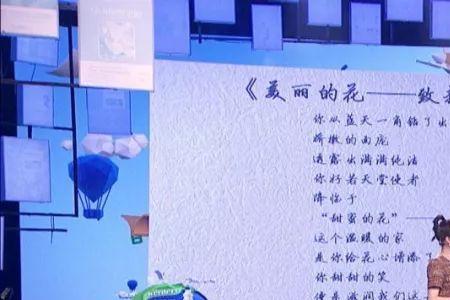 《美丽的花——致
你从蓝天一角钻了出
娇嫩的面庞
透露出满满纯洁
你好若天堂使者
降临于
“甜蜜的花”——
这个温暖的家
是你给花心增添了
你甜甜的笑